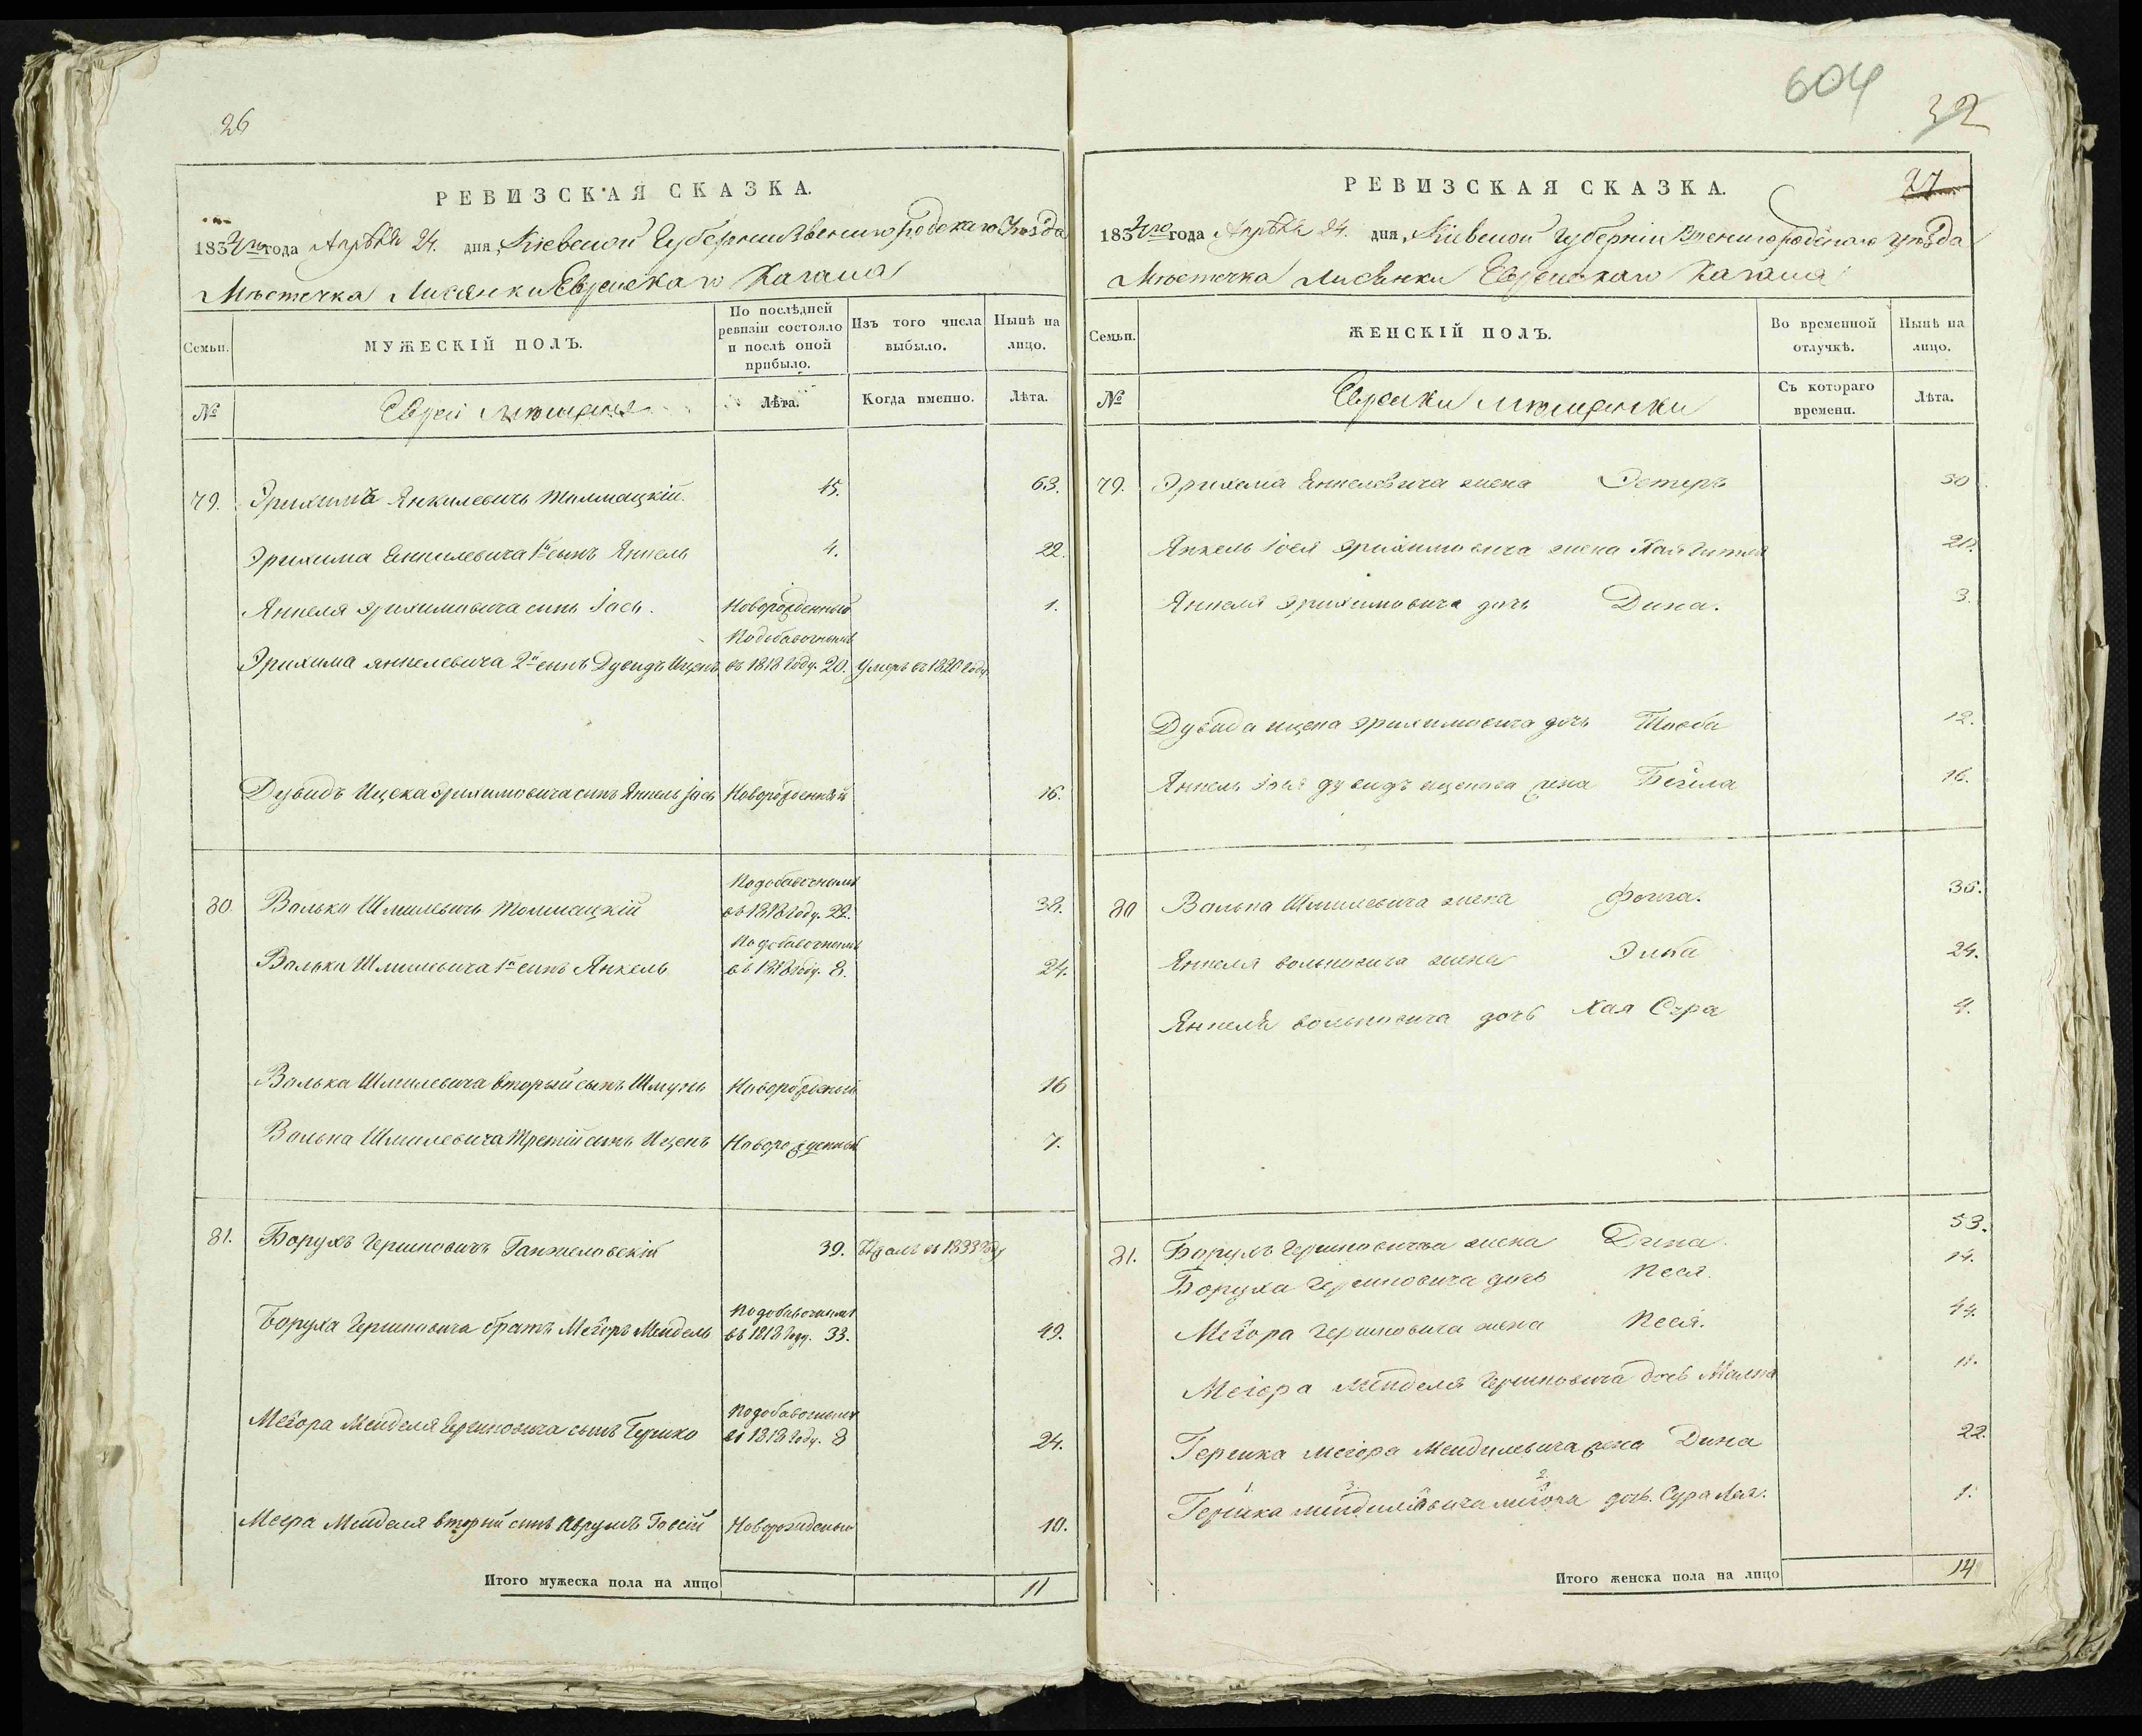 26
РЕВИЗСКАЯ СКАЗКА.
1834го года Апрѣля 24. дня, Кіевской Губерніи Звенигородскаго Уѣзда
Мѣстечка Лисянки Еврейскаго Кагала
Семьи.
МУЖЕСКІЙ ПОЛЪ.
По послѣдней ревизіи состояло и послѣ оной прибыло.
Изъ того числа выбыло.
Нынѣ на лицо.
№
Евреи мѣщане
Лѣта.
Когда именно.
Лѣта.
79. Эрихимъ Янкилевичь Толмацкій 45. 63.
Эрихима Янкилевича 1й сынъ Янкель 4. 22.
Янкеля Эрихимовича сынъ Іось. Новорожденный 1.
Подобавочнымъ
Эрихима Янкелевича 2й сынъ Дувидъ Ицекъ въ 1818 году. 20. Умеръ въ 1820 году
Дувидъ Ицека Эрихимовича сынъ Янкель Іось Новорожденный 16.
Подобавочнымъ
80 Валько Шмилевичь Толмацкій въ 1818 году. 22. 38.
Подобавочнымъ
Валька Шмилевича 1й сынъ Янкель въ 1818 году. 8. 24.
Валька Шмилевича вторый сынъ Шмуль Новорожденный 16
Валька Шмилевича Третій сынъ Ицекъ Новорожденный 7.
81. Борухъ Гершковичъ 39. въ 1833 году
Подобавочнымъ
Боруха Гершковича братъ Меіоръ Мендель въ 1818 году. 33. 49.
Подобавочнымъ
Меіора Менделя Гершковича сынъ Гершко въ 1818 году. 8 24.
Меера Менделя вторый сынъ Аврумъ Новорожденный 10.
Итого мужеска пола на лицо 11
604
32
27
РЕВИЗСКАЯ СКАЗКА.
1834го года Апрѣля 24. дня, Кіевской Губерніи Звенигородскаго уѣзда
Мѣстечка Лисянки Еврейскаго Кагала
Семьи.
ЖЕНСКІЙ ПОЛЪ.
Во временной отлучкѣ.
Нынѣ на лицо.
№
Еврейки мѣщанки
Съ котораго времени.
Лѣта.
79. Эрихима Янкелевича жена Эстеръ 50
Янкель Іося Эрихимовича жена Хая 21.
Янкеля Эрихимовича дочь Дина. 3.
Дувида Ицека Эрихимовича дочь 12.
Янкель Іося Дувидъ Ицекова жена Бейла 16.
80 Валька Шмилевича жена 36.
Янкеля Вольковича жена Элька 24.
Янкеля Вольковича дочь Хая Сура 4.
81. Борухъ Гершковичева жена Дина. 53.
Боруха Гершковича дочь Песя. 14.
Меіора Гершковича жена Песя. 44.
Меіора Менделя Гершковича дочь Малка 11.
Гершка Меіора Менделевича жена Дина 22.
1 3 2
Гершка Менделіовича Меіора дочь. Сура Лея. 1.
Итого женска пола на лицо 14